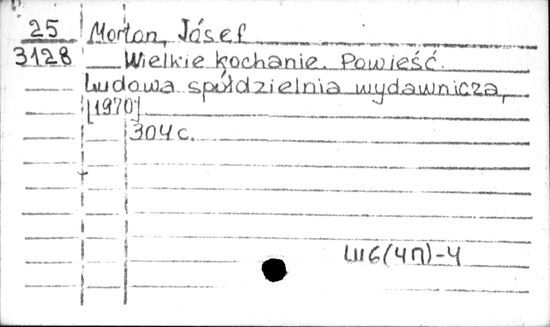 25 Morton, Jósef
3128 Wielkie kochanie. Powieść.
Ludowa spółdzielnia wydawnicza,
[1970]
304 с.
Ш6(4П)-4